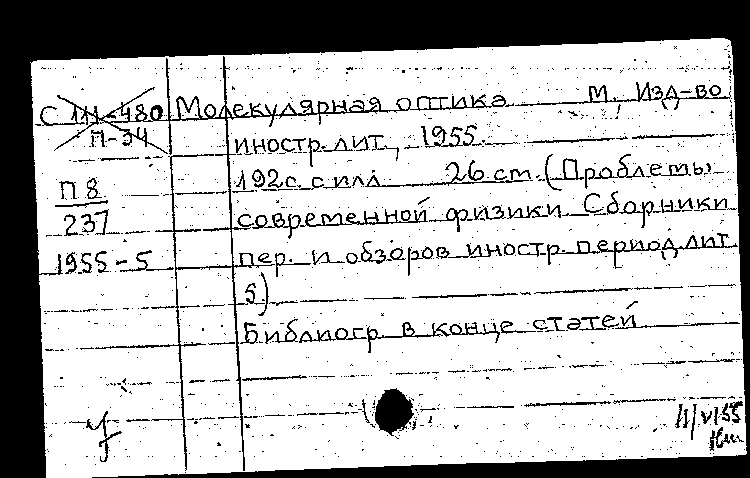 С Ш-480 Молекулярная оптика М., Изд-во
П-34
иностр. лит., 1955.
П8 192с. с илл 26 см. (Проблемы
237 современной физики Сборники
1955-5 пер. и обзоров иностр. период. лит
5)
Библиогр. в конце статей
VI 55